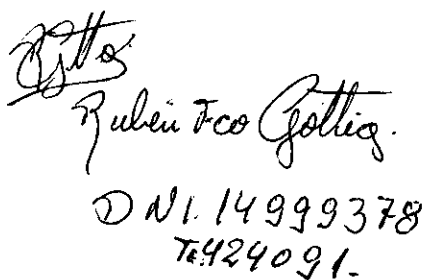 Rubén Fco Gottig.
DNI. 14999378
Te. 424091.